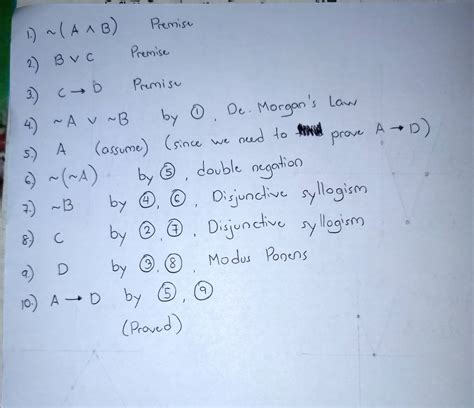 1.) ~(A ∧ B) Premise
2.) B ∨ C Premise
3.) C → D Premise
4.) ~A ∨ ~B by ①, De-Morgan's Law
5.) A (assume) (since we need to prove A → D)
6.) ~(~A) by ⑤, double negation
7.) ~B by ④, ⑥, Disjunctive syllogism
8.) C by ②, ⑦, Disjunctive syllogism
9.) D by ③, ⑧, Modus Ponens
10.) A → D by ⑤, ⑨
(Proved)